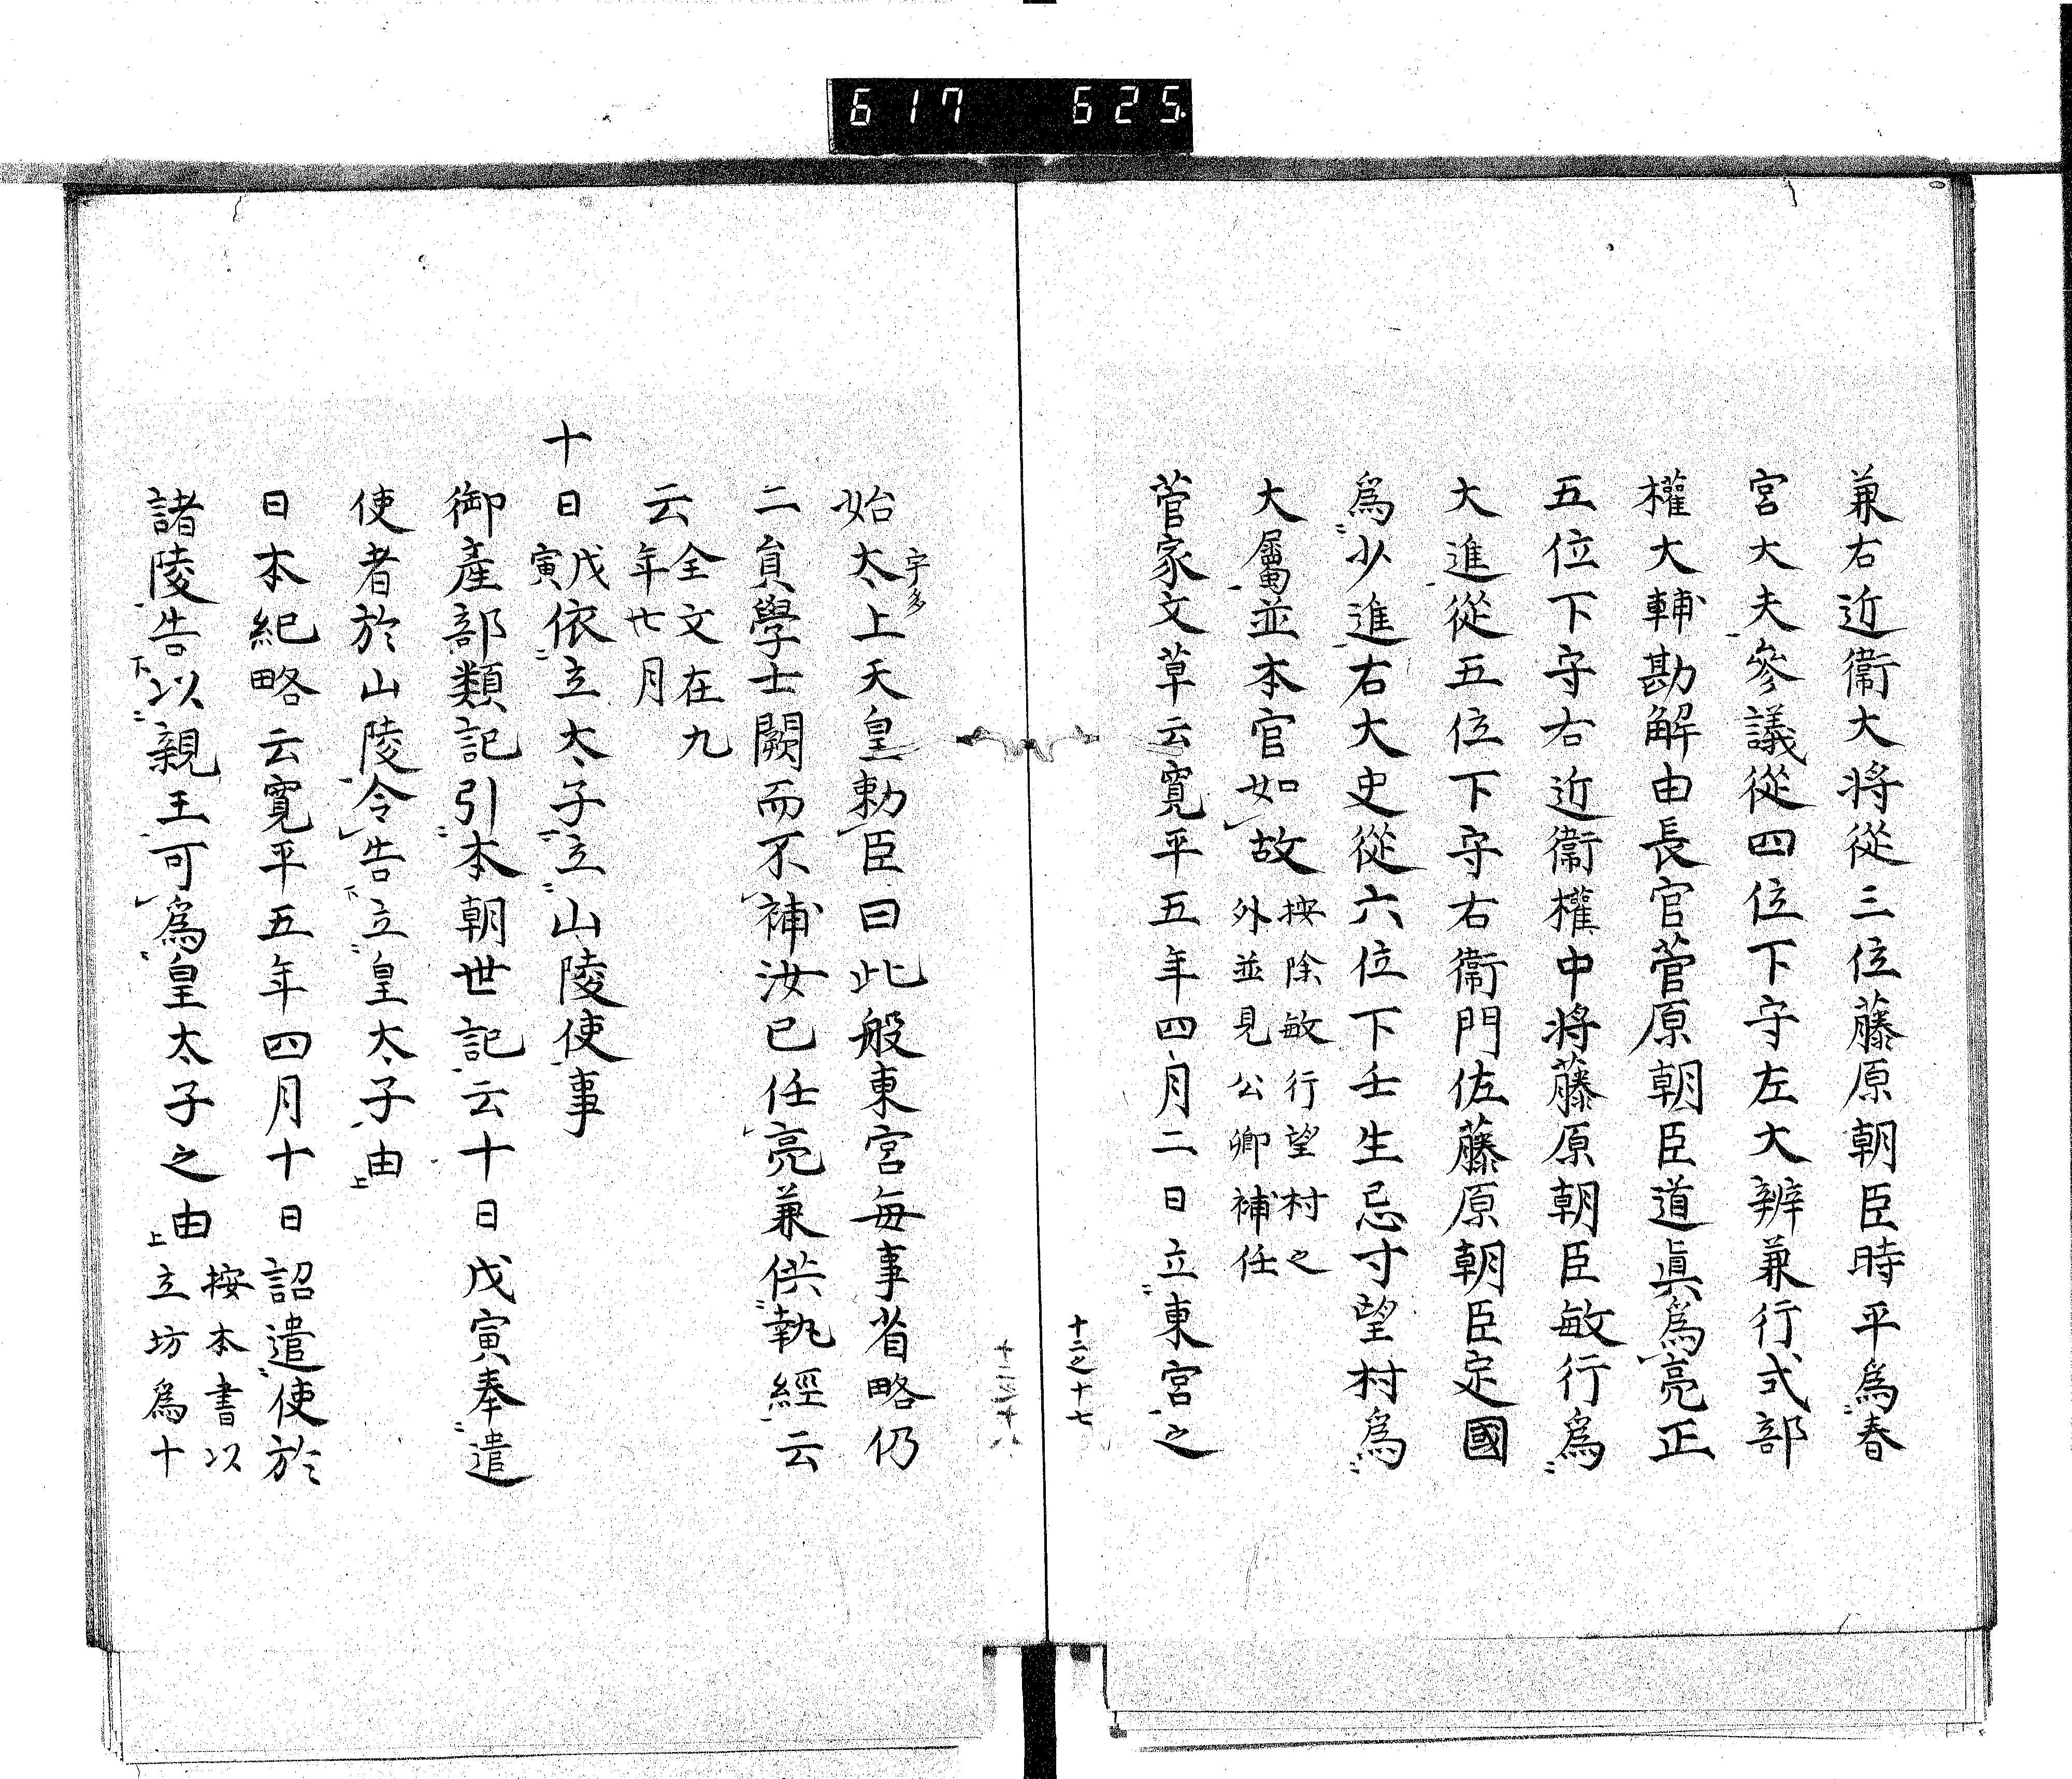 617 625
兼右近衞大將從三位藤原朝臣時平爲春
宮大夫參議從四位下守左大辨兼行式部
權大輔勘解由長官菅原朝臣道眞爲亮正
五位下守右近衞權中將藤原朝臣敏行爲
大進從五位下守右衞門佐藤原朝臣定國
爲少進右大史從六位下壬生忌寸望村爲
大屬並本官如故
按除敏行望村之
外並見公卿補任
菅家文草云寬平五年四月二日立東宮之
十二之十七
十二之十八
始太上天皇勅臣曰此般東宮每事省略仍
宇多
二員學士闕而不補汝已任亮兼供執經云
云
全文在九
年七月
十日
戊
寅
依立太子立山陵使事
御產部類記引本朝世記云十日戊寅奉遣
使者於山陵令告立皇太子由
下
上
日本紀略云寬平五年四月十日詔遣使於
諸陵告以親王可爲皇太子之由
下
上
按本書以
立坊爲十